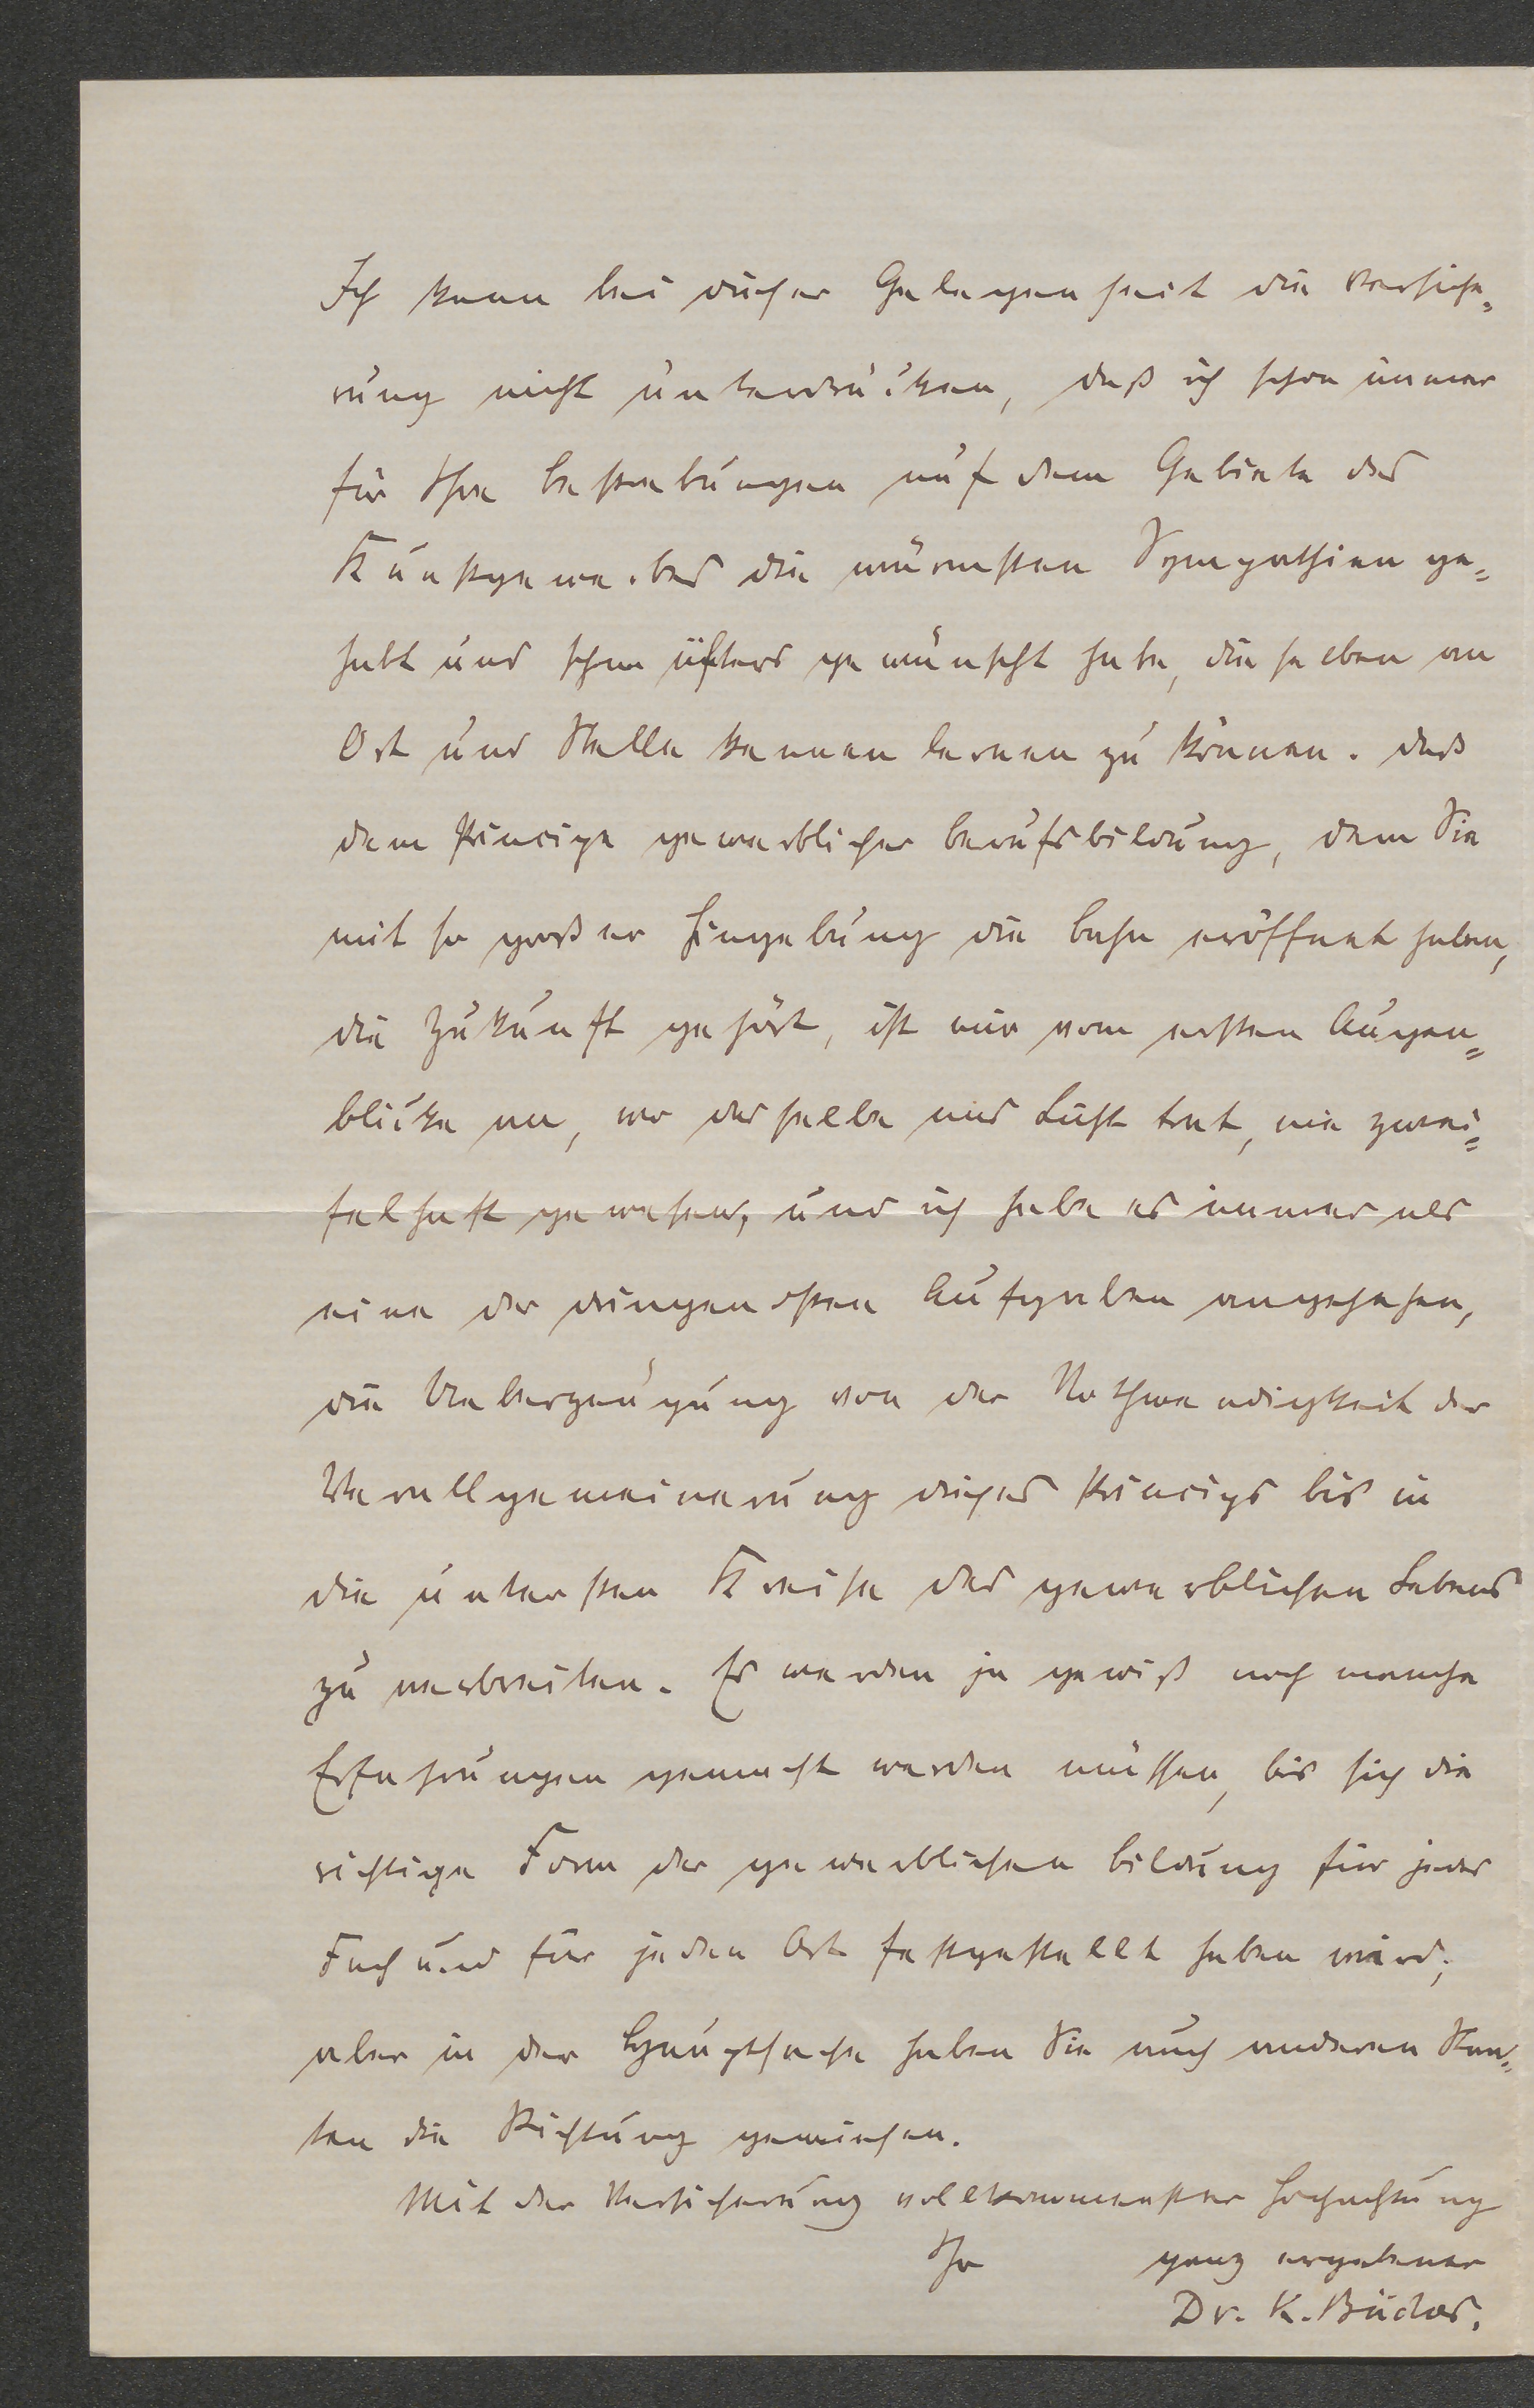 Ich kann bei dieser Gelegenheit die Versiche¬
rung nicht unterdrücken, daß ich schon immer
für Ihre Bestrebungen auf dem Gebiete des
Kunstgewerbes die wärmsten Sympathien ge¬
habt und schon öfters gewünscht habe, dieselben an
Ort und Stelle kennen lernen zu können. Daß
dem Principe gewerblicher Berufsbildung, dem Sie
mit so großer Hingebung die Bahn eröffnet haben,
die Zukunft gehört, ist mir vom ersten Augen¬
blicke an, wo dasselbe ans Licht trat, nie zwei¬
felhaft gewesen, und ich habe es immer als
eine der dringendsten Aufgaben angesehen,
die Ueberzeugung von der Nothwendigkeit der
Verallgemeinerung dieses Princips bis in
die untersten Kreise des gewerblichen Lebens
zu verbreiten. Es werden ja gewiß noch manche
Erfahrungen gemacht werden müssen, bis sich die
richtige Form der gewerblichen Bildung für jedes
Fach und für jeden Ort festgestellt haben wird;
aber in der Hauptsache haben Sie auch anderen Staa¬
ten die Richtung gewiesen.
Mit der Versicherung vollkommenster Hochachtung
Ihr ganz ergebener
Dr. K. Bücher.